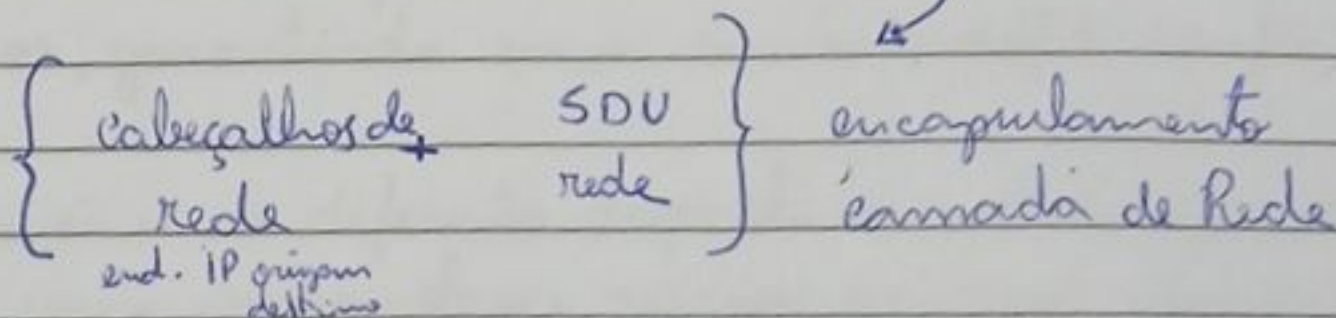 { cabeçalhos de + SDU } encapsulamento
rede rede camada de Rede
end. IP origem
destino